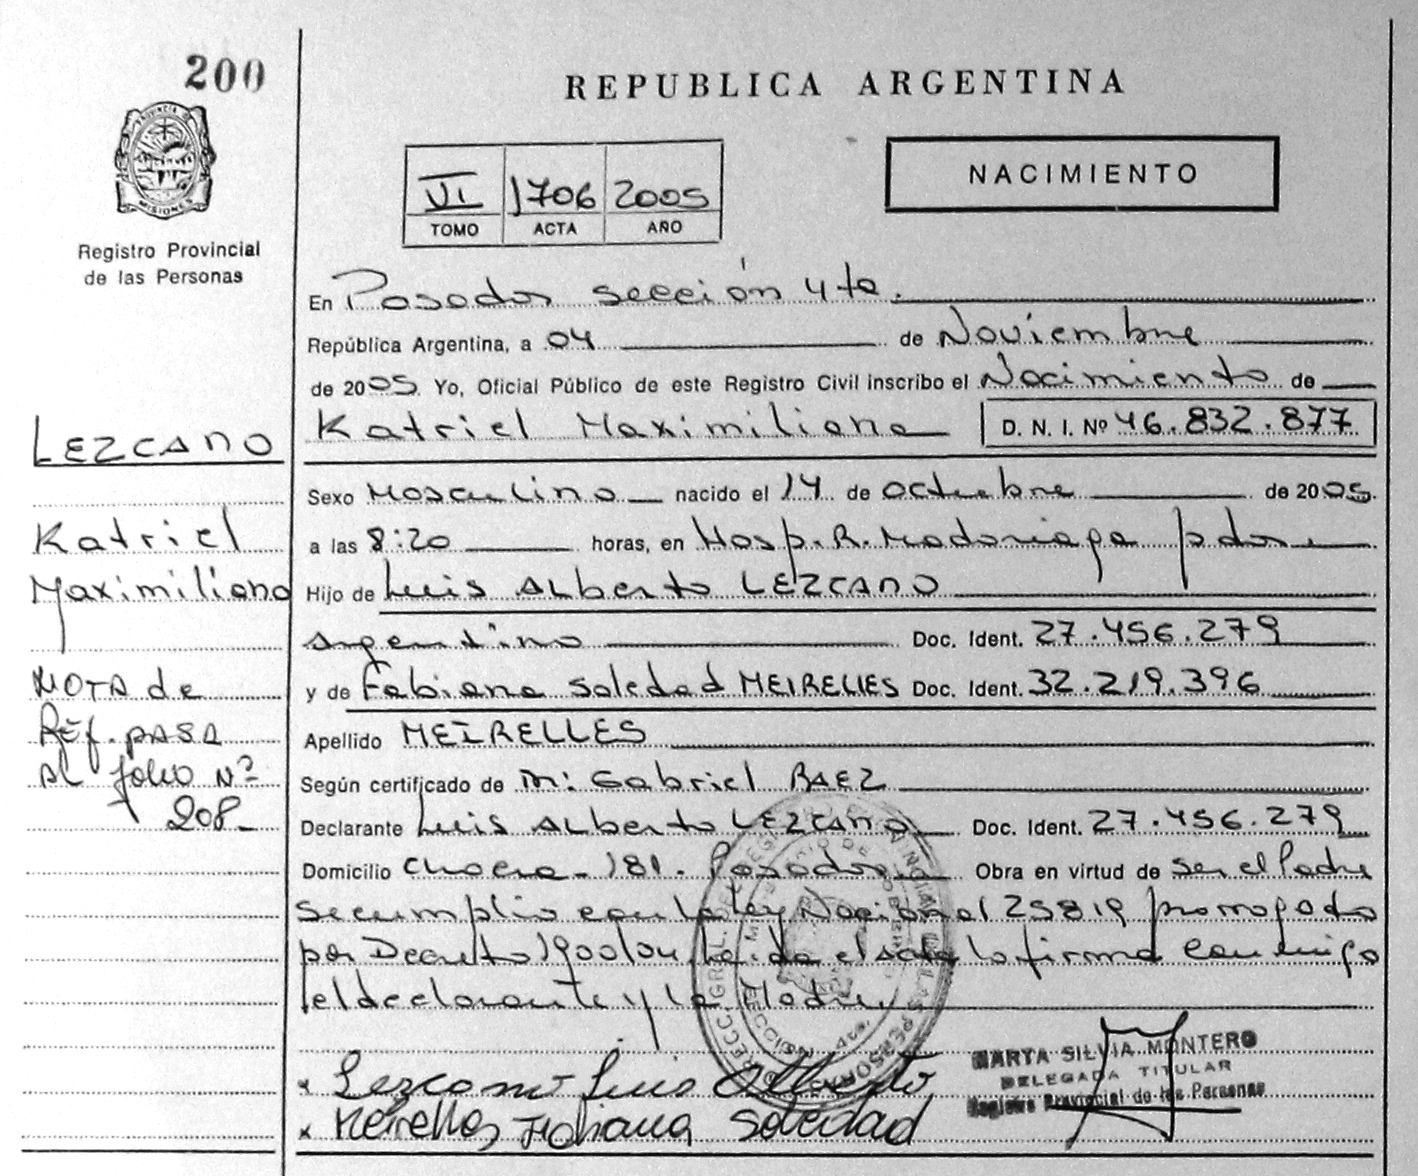 200
REPUBLICA ARGENTINA
PROVINCIA DE
MISIONES
Registro Provincial
de las Personas
VI 1706 2005
TOMO ACTA AÑO
NACIMIENTO
En Posadas sección 4ta.
República Argentina, a 04 de Noviembre
de 2005 Yo, Oficial Público de este Registro Civil inscribo el Nacimiento de
Katriel Maximiliano D. N. I. Nº 46.832.877
LEZCANO
Katriel
Maximiliano
NOTA de
Ref. PASA
AL folio Nº
208-
Sexo Masculino nacido el 14 de octubre de 2005
a las 8:20 horas, en Hosp. R. Madariaga pdas
Hijo de Luis ALberto LEZCANO
argentino Doc. Ident. 27.456.279
y de Fabiana Soledad MEIRELLES Doc. Ident. 32.219.396
Apellido MEIRELLES
Según certificado de m: Gabriel BAEZ
Declarante Luis ALberto LEZCANO Doc. Ident. 27.456.279
Domicilio chacra - 181. Posadas Obra en virtud de ser el Padre
se cumplio con la Ley Nacional 25819 prorrogado
por Decreto 1900/04, leída el acta la firma conmigo
el declarante y la Madre.
x Lezcano Luis Alberto
x Meirelles Fabiana Soledad
MARTA SILVIA MONTERO
DELEGADA TITULAR
Registro Provincial de las Personas